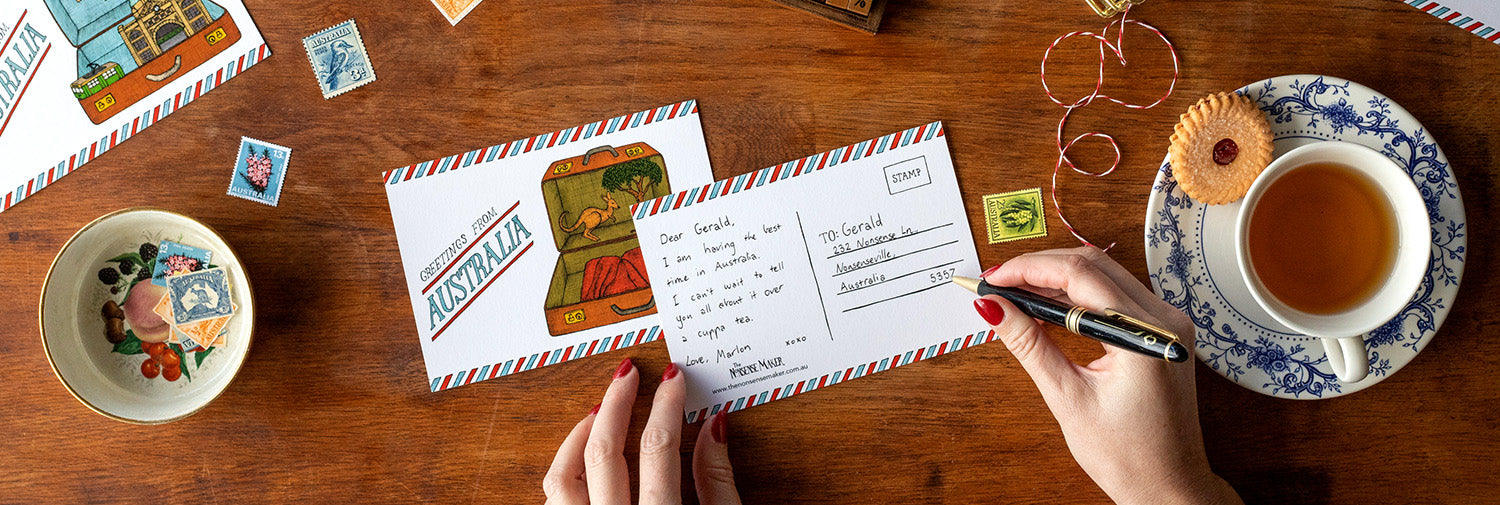 AUSTRALIA
AUSTRALIA
3D
13
AUSTRALIA
GREETINGS FROM
AUSTRALIA
Dear Gerald,
I am having the best
time in Australia.
I can't wait to tell
you all about it over
a cuppa tea.
Love, Marlon
xoxo
The
NONSENSE MAKER
www.thenonsensemaker.com.au
STAMP
TO: Gerald
232 Nonsense Ln,
Nonsenseville,
Australia 5357
AUSTRALIA